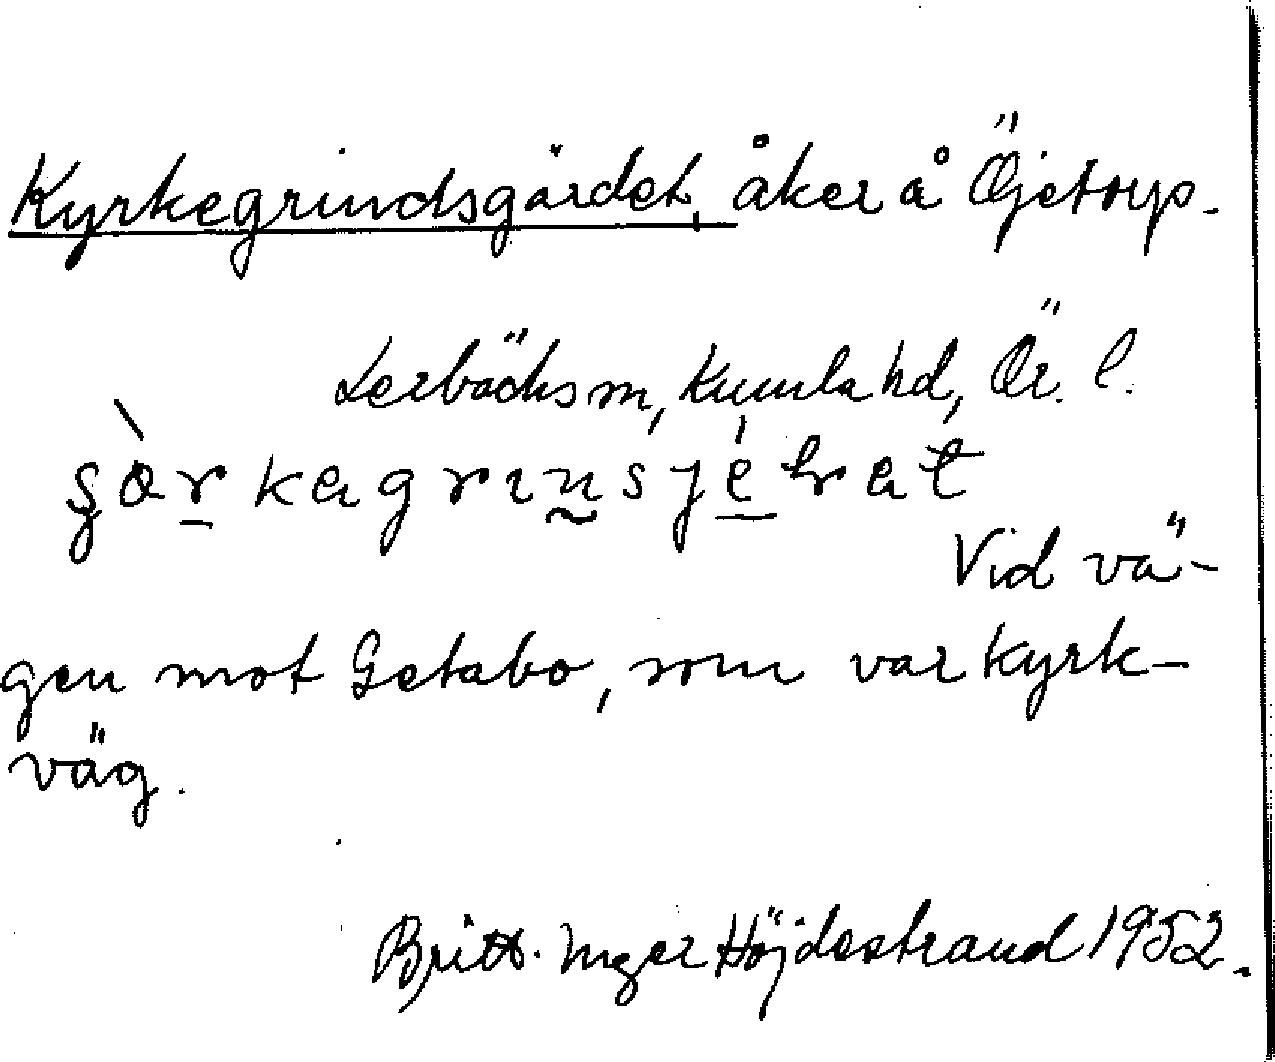 Kyrkegrindsgärdet, åker å Öjetorp.
Lerbäcks sn, Kumla hd, Ör. l.
Vid vä-
gen mot Getabo, som var kyrk-
väg.
Britt-Inger Höjdestrand 1952.